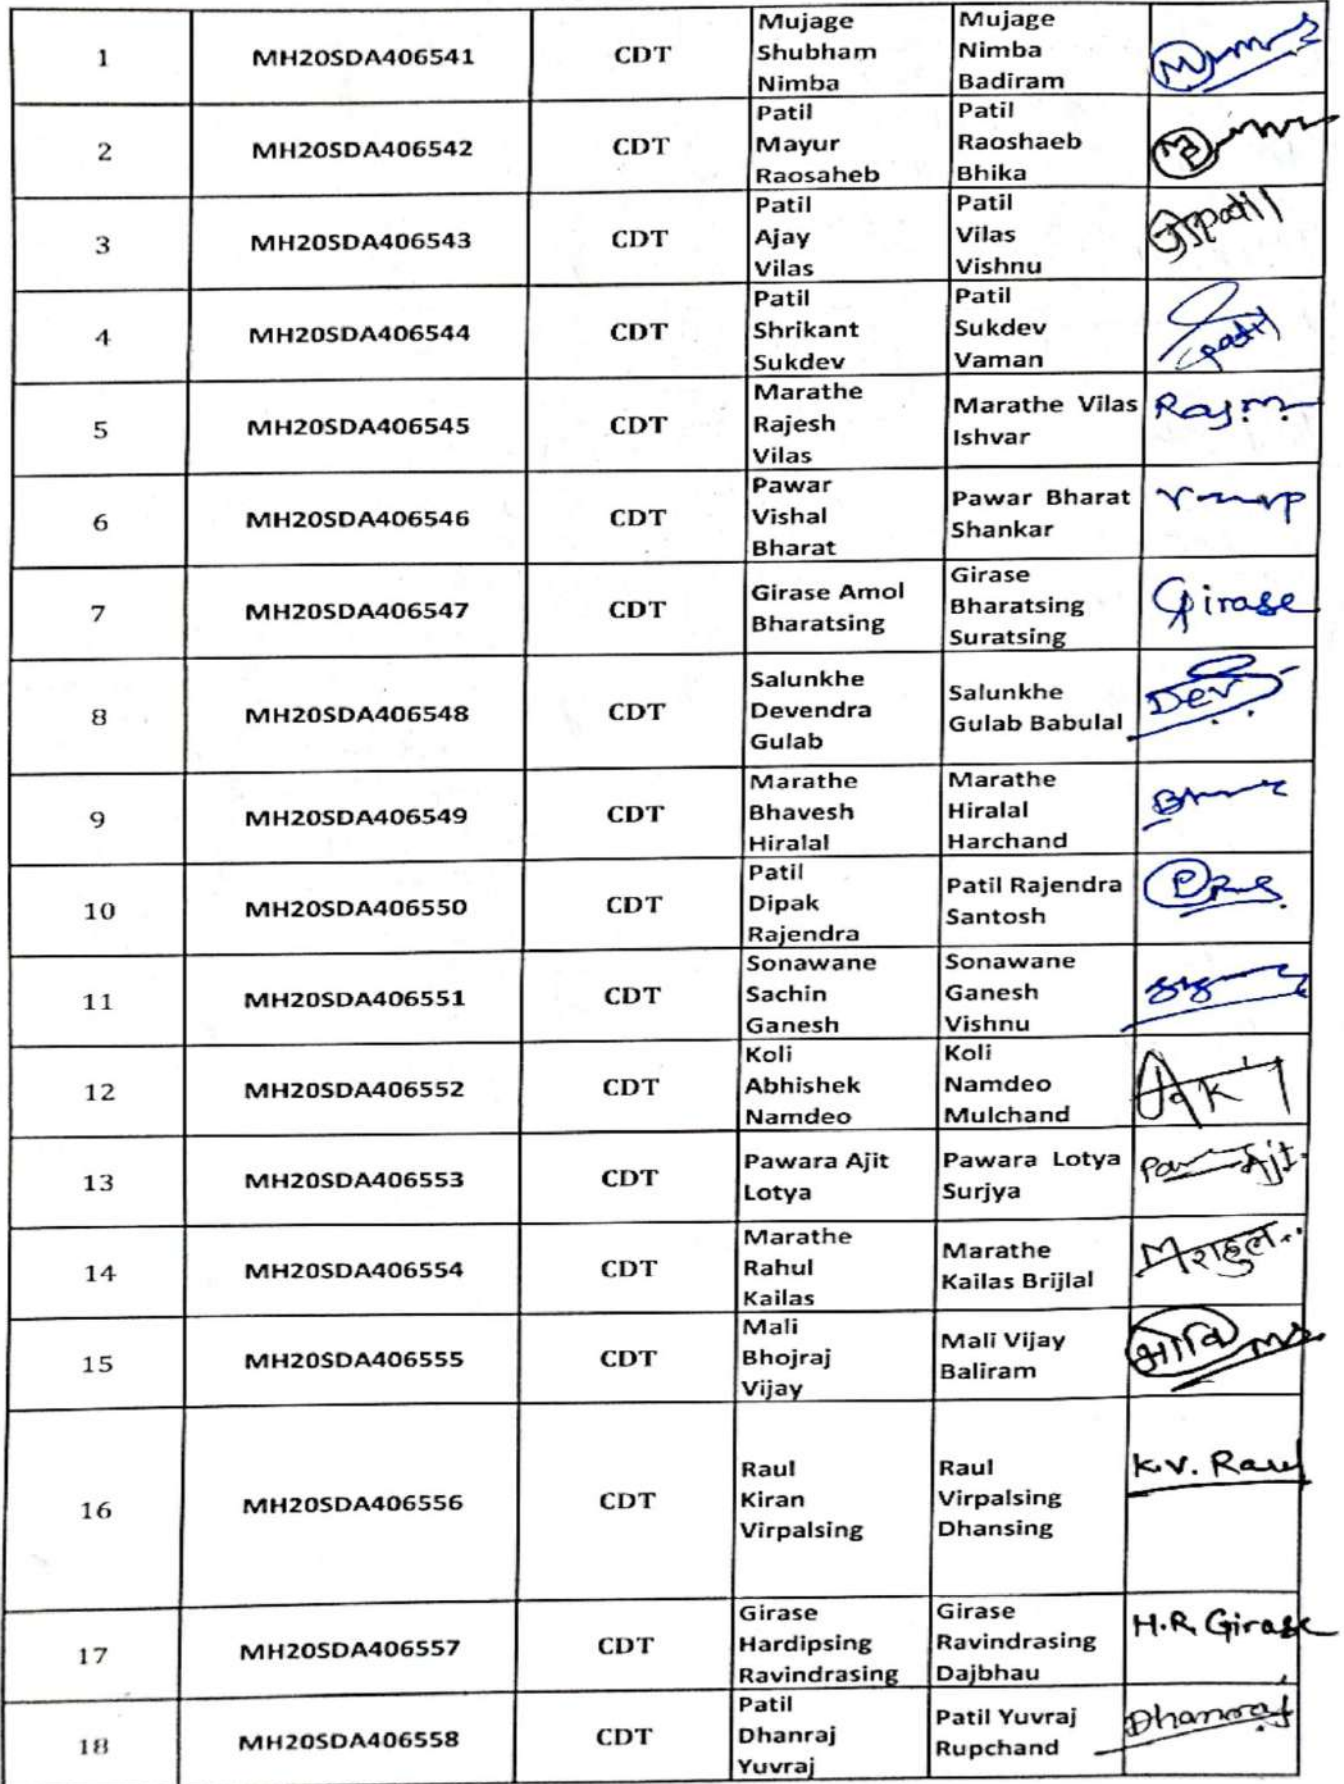 1 MH20SDA406541 CDT Mujage Shubham Nimba Mujage Nimba Badiram
2 MH20SDA406542 CDT Patil Mayur Raosaheb Patil Raoshaeb Bhika
3 MH20SDA406543 CDT Patil Ajay Vilas Patil Vilas Vishnu
4 MH20SDA406544 CDT Patil Shrikant Sukdev Patil Sukdev Vaman
5 MH20SDA406545 CDT Marathe Rajesh Vilas Marathe Vilas Ishvar
6 MH20SDA406546 CDT Pawar Vishal Bharat Pawar Bharat Shankar
7 MH20SDA406547 CDT Girase Amol Bharatsing Girase Bharatsing Suratsing Girase
8 MH20SDA406548 CDT Salunkhe Devendra Gulab Salunkhe Gulab Babulal Dev
9 MH20SDA406549 CDT Marathe Bhavesh Hiralal Marathe Hiralal Harchand
10 MH20SDA406550 CDT Patil Dipak Rajendra Patil Rajendra Santosh
11 MH20SDA406551 CDT Sonawane Sachin Ganesh Sonawane Ganesh Vishnu
12 MH20SDA406552 CDT Koli Abhishek Namdeo Koli Namdeo Mulchand
13 MH20SDA406553 CDT Pawara Ajit Lotya Pawara Lotya Surjya
14 MH20SDA406554 CDT Marathe Rahul Kailas Marathe Kailas Brijlal
15 MH20SDA406555 CDT Mali Bhojraj Vijay Mali Vijay Baliram
16 MH20SDA406556 CDT Raul Kiran Virpalsing Raul Virpalsing Dhansing K.V. Raul
17 MH20SDA406557 CDT Girase Hardipsing Ravindrasing Girase Ravindrasing Dajbhau H.R. Girase
18 MH20SDA406558 CDT Patil Dhanraj Yuvraj Patil Yuvraj Rupchand Dhanraj